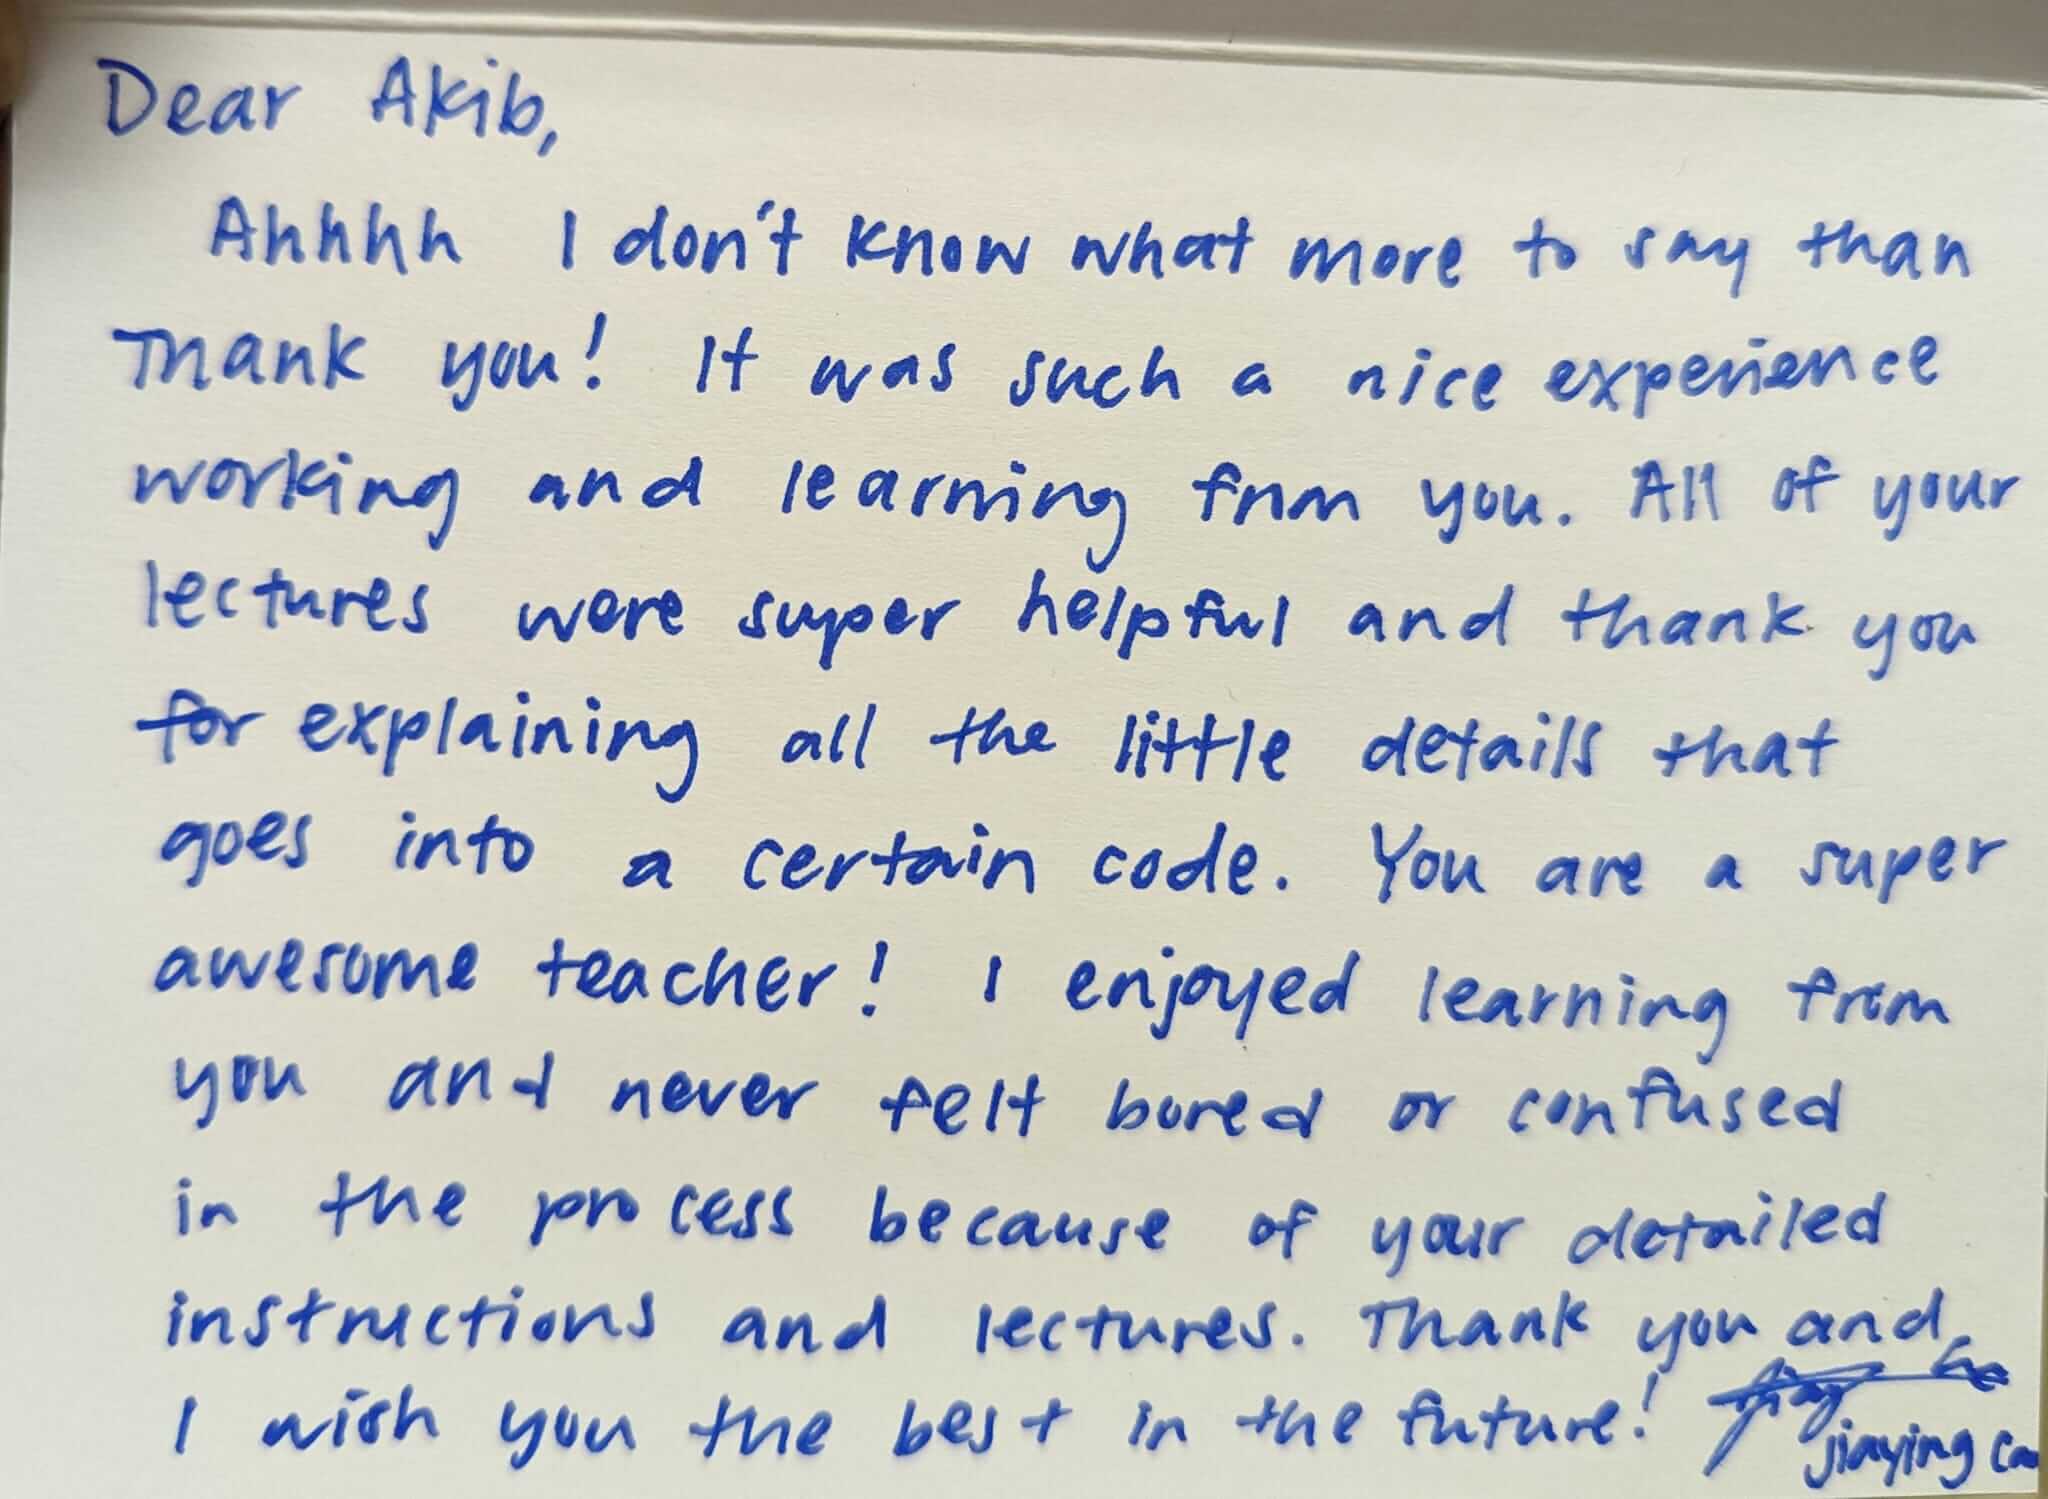 Dear Akib,
Ahhhh I don't know what more to say than
Thank you! It was such a nice experience
working and learning from you. All of your
lectures were super helpful and thank you
for explaining all the little details that
goes into a certain code. You are a super
awesome teacher! I enjoyed learning from
you and never felt bored or confused
in the process because of your detailed
instructions and lectures. Thank you and
I wish you the best in the future!
jiaying